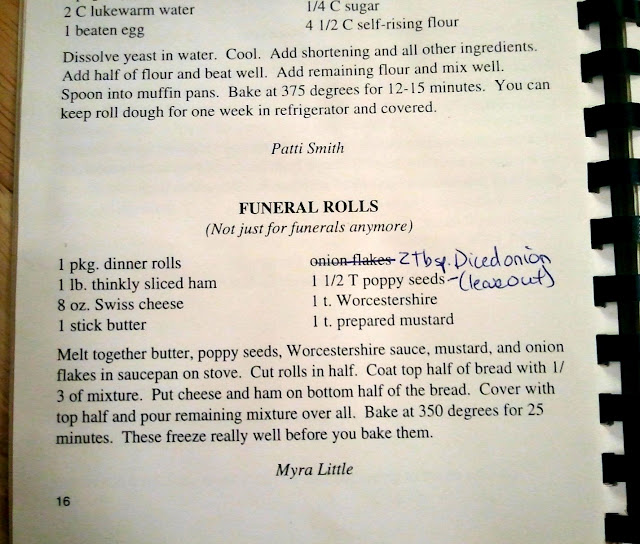 2 C lukewarm water 1/4 C sugar
1 beaten egg 4 1/2 C self-rising flour
Dissolve yeast in water. Cool. Add shortening and all other ingredients.
Add half of flour and beat well. Add remaining flour and mix well.
Spoon into muffin pans. Bake at 375 degrees for 12-15 minutes. You can
keep roll dough for one week in refrigerator and covered.
Patti Smith
FUNERAL ROLLS
(Not just for funerals anymore)
1 pkg. dinner rolls onion flakes 2 tbsp. Diced onion
1 lb. thinkly sliced ham 1 1/2 T poppy seeds -(leave out)
8 oz. Swiss cheese 1 t. Worcestershire
1 stick butter 1 t. prepared mustard
Melt together butter, poppy seeds, Worcestershire sauce, mustard, and onion
flakes in saucepan on stove. Cut rolls in half. Coat top half of bread with 1/
3 of mixture. Put cheese and ham on bottom half of the bread. Cover with
top half and pour remaining mixture over all. Bake at 350 degrees for 25
minutes. These freeze really well before you bake them.
Myra Little
16